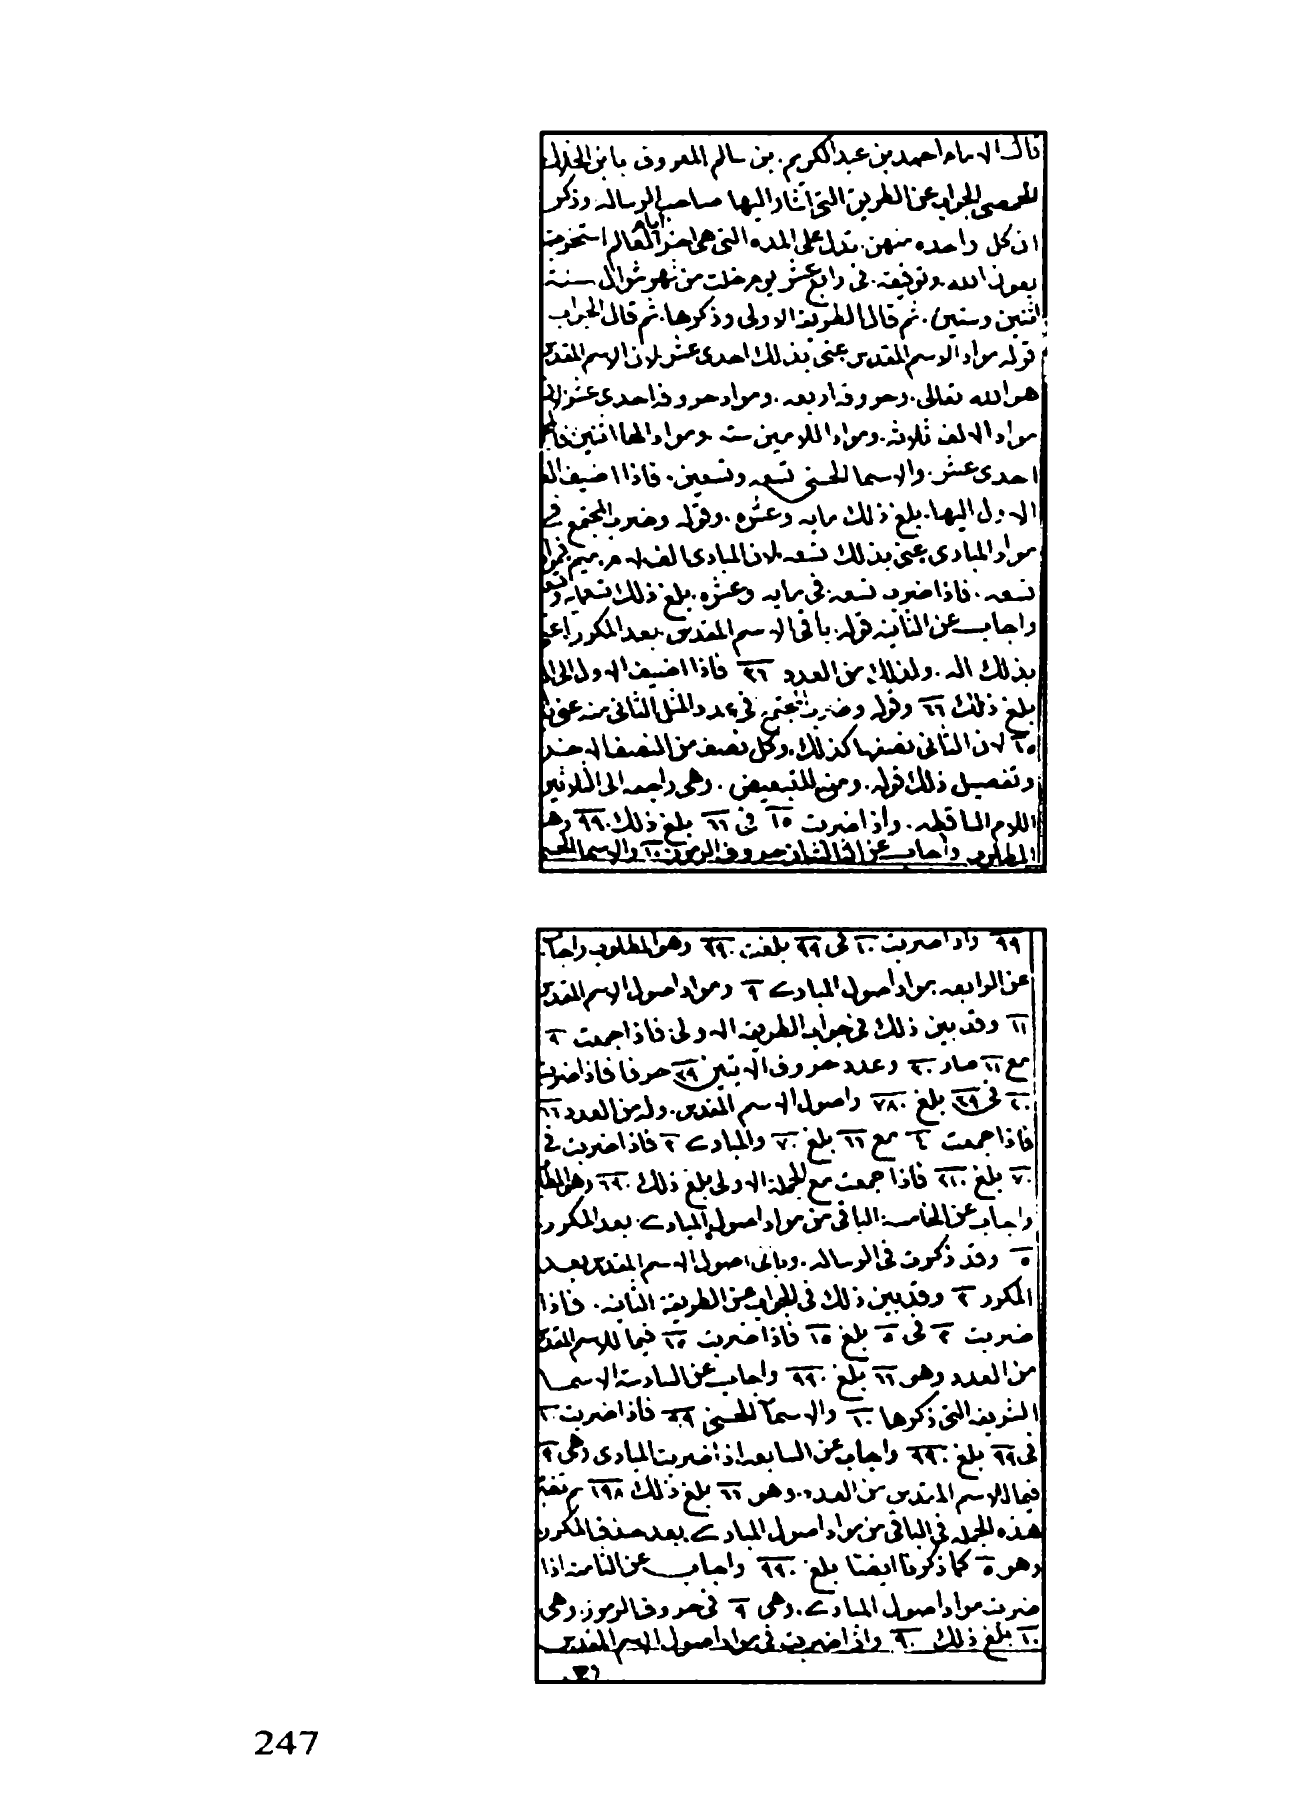 قال الامام احمد بن عبد الكريم بن سالم المعروف بابن الخلال
الحمصي الجواب عن الطريق التي اشار اليها صاحب الرساله وذكر
ان كل واحده منهن تدل على المده التي هي اخر ايام العالم استخرجته
بعون الله وتوفيقه في رابع عشر يوم خلت من شهر شوال سنة
اثنين وستين ثم قال الطريقة الاولى وذكرها ثم قال الجواب
قوله مواد الاسم المقدس عنى بذلك احدى عشر لان الاسم المقدس
هو الله تعالى وحروفه اربعه ومواد حروفه احدى عشر لان
مواد الالف ثلاثة ومواد اللامين ستة ومواد الها اثنين
احدى عشر والاسما الحسنى تسعه وتسعين فاذا اضيف
الاول اليها بلغ ذلك مايه وعشره وقوله وضرب المجتمع في
مواد المبادي يعني بذلك تسعه لان المبادي الف لام ميم
تسعه فاذا ضرب تسعه في مايه وعشره بلغ ذلك تسعمايه
واجاب عن الثانيه قوله باقي الاسم المقدس بعد المكرر اعني
بذلك اله ولذلك من العدد ٣٦ فاذا اضيف الاول الى
بلغ ذلك ٦٦ وقوله وضرب المجتمع في عدد المثل الثاني منه عنى
١٥ لان الثاني نصفها كذلك وكل نصف من النصف الاخر
وتفصيل ذلك قوله ومنه للتبعيض وهي راجعه الى الثلاثين
اللام الساقطه واذا ضربت ١٥ في ٦٦ بلغ ذلك ٩٩٠ وهو
المطلوب واجاب عن الثالثه ان حروف الرموز ١٠ والاسما الحسنى
٩٩ واذا ضربت ١٠ في ٩٩ بلغت ٩٩٠ وهو المطلوب واجاب
عن الرابعه مواد اصول المبادي ٩ ومواد اصول الاسم المقدس
١١ وقد بين ذلك في جواب الطريقه الاولى فاذا جمعت ٩
مع ١١ صار ٢٠ وعدد حروف الايتين ٣٩ حرفا فاذا ضربت
٢٠ في ٣٩ بلغ ٧٨٠ واصول الاسم المقدس وله من العدد ٦٦
فاذا جمعت ٤ مع ٦٦ بلغ ٧٠ والمبادي ٣ فاذا ضربت في
٧٠ بلغ ٢١٠ فاذا جمعت مع الجملة الاولى بلغ ذلك ٩٩٠ وهو
واجاب عن الخامسه الباقي من مواد اصول المبادي بعد المكرر
٥ وقد ذكرت في الرساله وباقي اصول الاسم المقدس بعد
المكرر ٣ وقد بين ذلك في الجواب عن الطريقة الثانيه فاذا
ضربت ٣ في ٥ بلغ ١٥ فاذا ضربت ١٥ فيما للاسم المقدس
من العدد وهو ٦٦ بلغ ٩٩٠ واجاب عن السادسة الاسما
الشريفه التي ذكرها ١٠ والاسما الحسنى ٩٩ فاذا ضربت ١٠
في ٩٩ بلغ ٩٩٠ واجاب عن السابعه اذا ضربت المبادي وهي ٣
فيما للاسم المقدس من العدد وهو ٦٦ بلغ ذلك ١٩٨ ثم
هذه الجمله في الباقي من مواد اصول المبادي بعد حذف المكرر
وهو ٥ كما ذكرنا ايضا بلغ ٩٩٠ واجاب عن الثامنه اذا
ضربت مواد اصول المبادي وهي ٩ في حروف الرموز وهي
١٠ بلغ ذلك ٩٠ واذا ضربت في مواد اصول الاسم المقدس
247